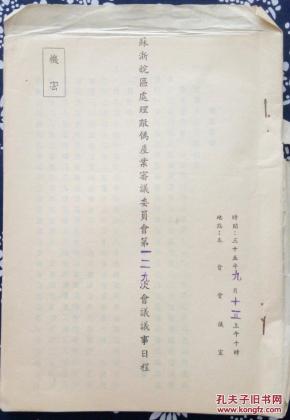 機密
蘇浙皖區處理敵偽產業審議委員會第一二九次會議議事日程
時間：三十五年九月十三上午十時
地點：本會會議室
孔夫子旧书网